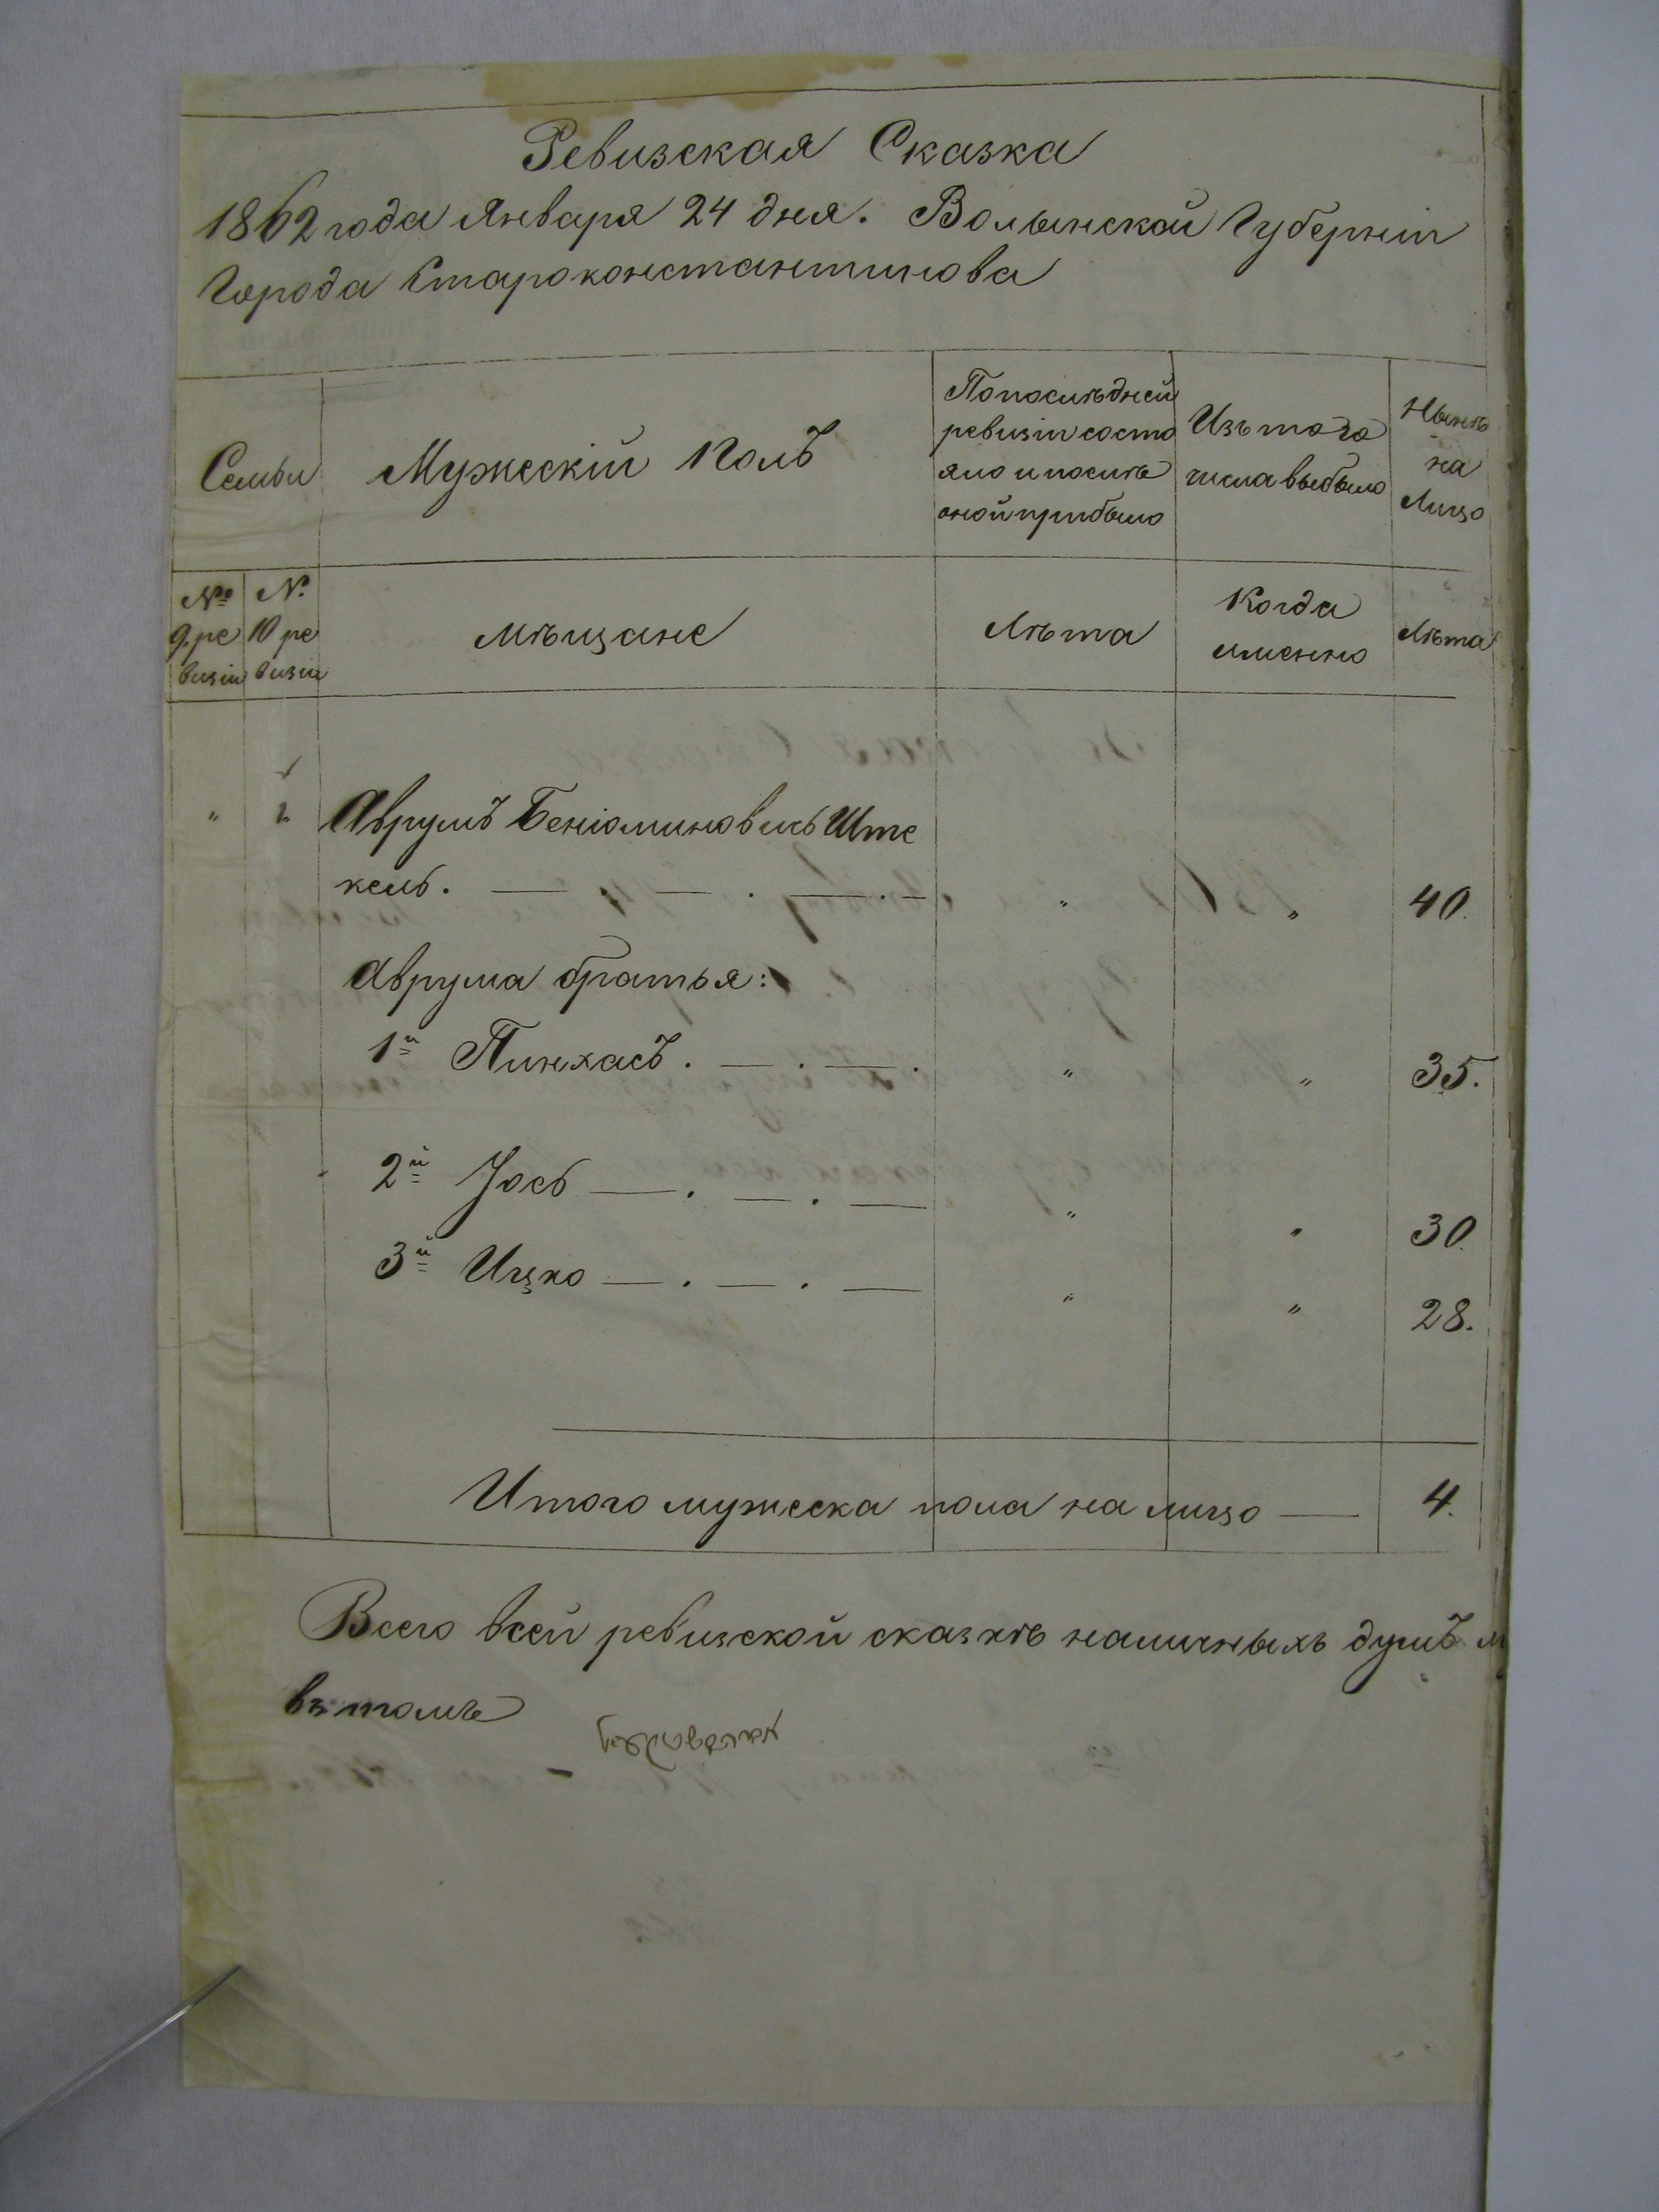 Ревизская Сказка
1862 года Января 24 дня. Волынской Губерніи
Города Староконстантинова
Семьи
Мужескій полъ
По послѣдней
ревизіи состо
яло и послѣ
оной прибыло
Изъ того
числа выбыло
Нынѣ
на
Лицо
№
9. ре
визіи
№
10 ре
визіи
Мѣщане
Лѣта
Когда
именно
Лѣта
" 1. Аврумъ Беніоминовичъ Ште
кель. — . — . — . — " " 40.
Аврума братья:
1й Пинхасъ. — . — . " " 35.
2й Іось — . — . — " " 30.
3й Ицко — . — . — " " 28.
Итого мужеска пола на лицо — 4.
Всего всей ревизской сказкѣ наличныхъ душъ м
въ томъ